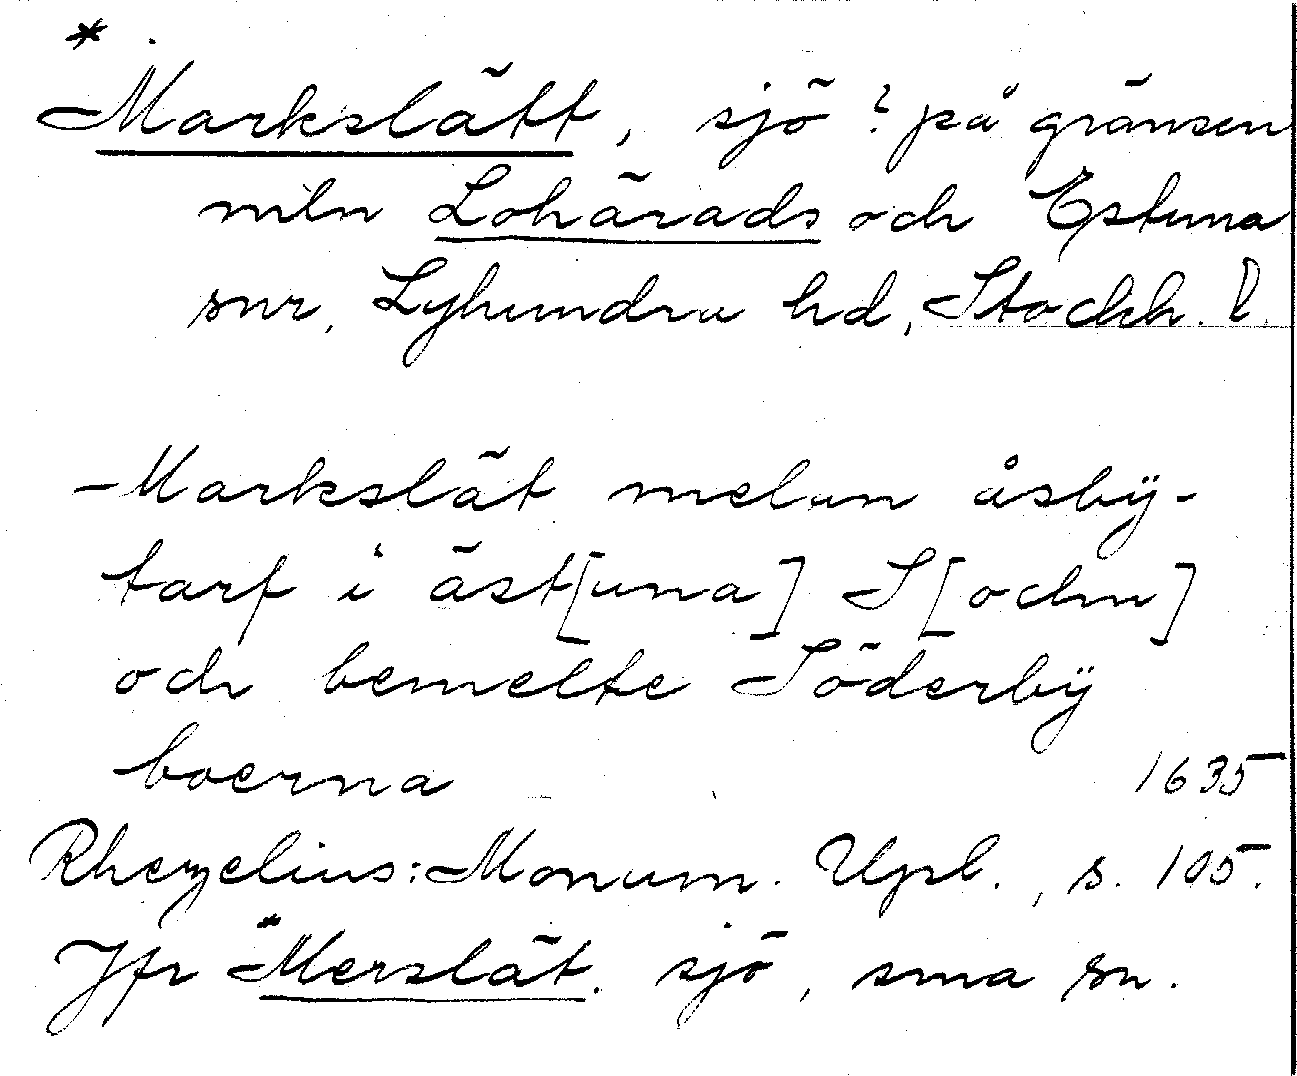 *
Markslätt, sjö? på gränsen
mln Lohärads och Estuna
snr, Lyhundra hd, Stockh. l.
Markslät melan åsbÿ-
tarp i äst[una] S[ochn]
och bemelte Söderbÿ
boerna 1635
Rhezelius: Monum. Upl., s. 105.
Jfr *Merslät. sjö, sma sn.